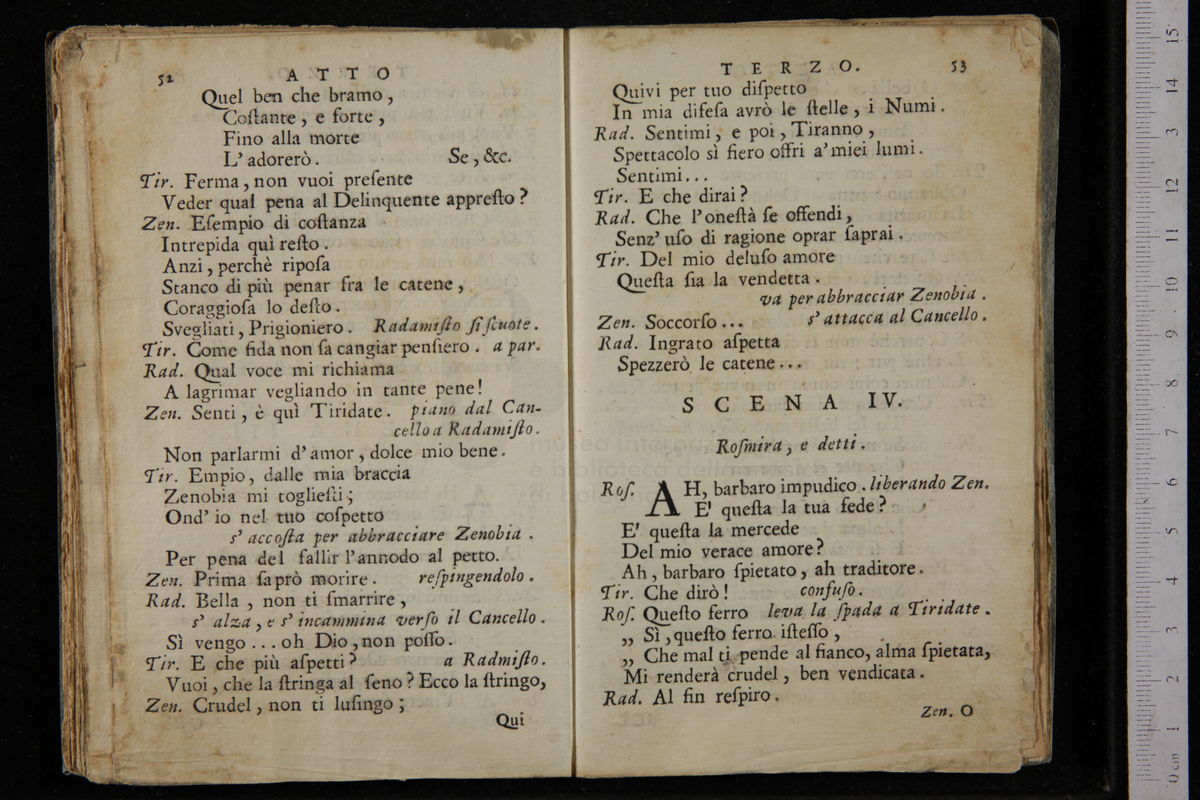 52 ATTO
Quel ben che bramo,
Coſtante, e forte,
Fino alla morte
L' adorerò. Se, &c.
Tir. Ferma, non vuoi preſente
Veder qual pena al Delinquente appreſto?
Zen. Eſempio di coſtanza
Intrepida quì reſto.
Anzi, perchè ripoſa
Stanco di più penar fra le catene,
Coraggioſa lo deſto.
Svegliati, Prigioniero. Radamiſto ſi ſcuote.
Tir. Come fida non ſa cangiar penſiero. a par.
Rad. Qual voce mi richiama
A lagrimar vegliando in tante pene!
Zen. Senti, è quì Tiridate. piano dal Can-
cello a Radamiſto.
Non parlarmi d' amor, dolce mio bene.
Tir. Empio, dalle mia braccia
Zenobia mi toglieſti;
Ond' io nel tuo coſpetto
s' accoſta per abbracciare Zenobia.
Per pena del fallir l'annodo al petto.
Zen. Prima ſaprò morire. reſpingendolo.
Rad. Bella, non ti ſmarrire,
s' alza, e s' incammina verſo il Cancello.
Sì vengo... oh Dio, non poſſo.
Tir. E che più aſpetti? a Radmiſto.
Vuoi, che la ſtringa al ſeno? Ecco la ſtringo,
Zen. Crudel, non ti luſingo;
Qui
TERZO. 53
Quivi per tuo diſpetto
In mia difeſa avrò le ſtelle, i Numi.
Rad. Sentimi, e poi, Tiranno,
Spettacolo sì fiero offri a' miei lumi.
Sentimi...
Tir. E che dirai?
Rad. Che l'oneſtà ſe offendi,
Senz' uſo di ragione oprar ſaprai.
Tir. Del mio deluſo amore
Queſta ſia la vendetta.
va per abbracciar Zenobia.
Zen. Soccorſo... s' attacca al Cancello.
Rad. Ingrato aſpetta
Spezzerò le catene...
SCENA IV.
Roſmira, e detti.
Roſ. AH, barbaro impudico. liberando Zen.
E' queſta la tua fede?
E' queſta la mercede
Del mio verace amore?
Ah, barbaro ſpietato, ah traditore.
Tir. Che dirò! confuſo.
Roſ. Queſto ferro leva la ſpada a Tiridate.
„ Sì, queſto ferro iſteſſo,
„ Che mal ti pende al fianco, alma ſpietata,
Mi renderà crudel, ben vendicata.
Rad. Al fin reſpiro.
Zen. O
15
14
13
12
11
10
9
8
7
6
5
4
3
2
1
0 cm